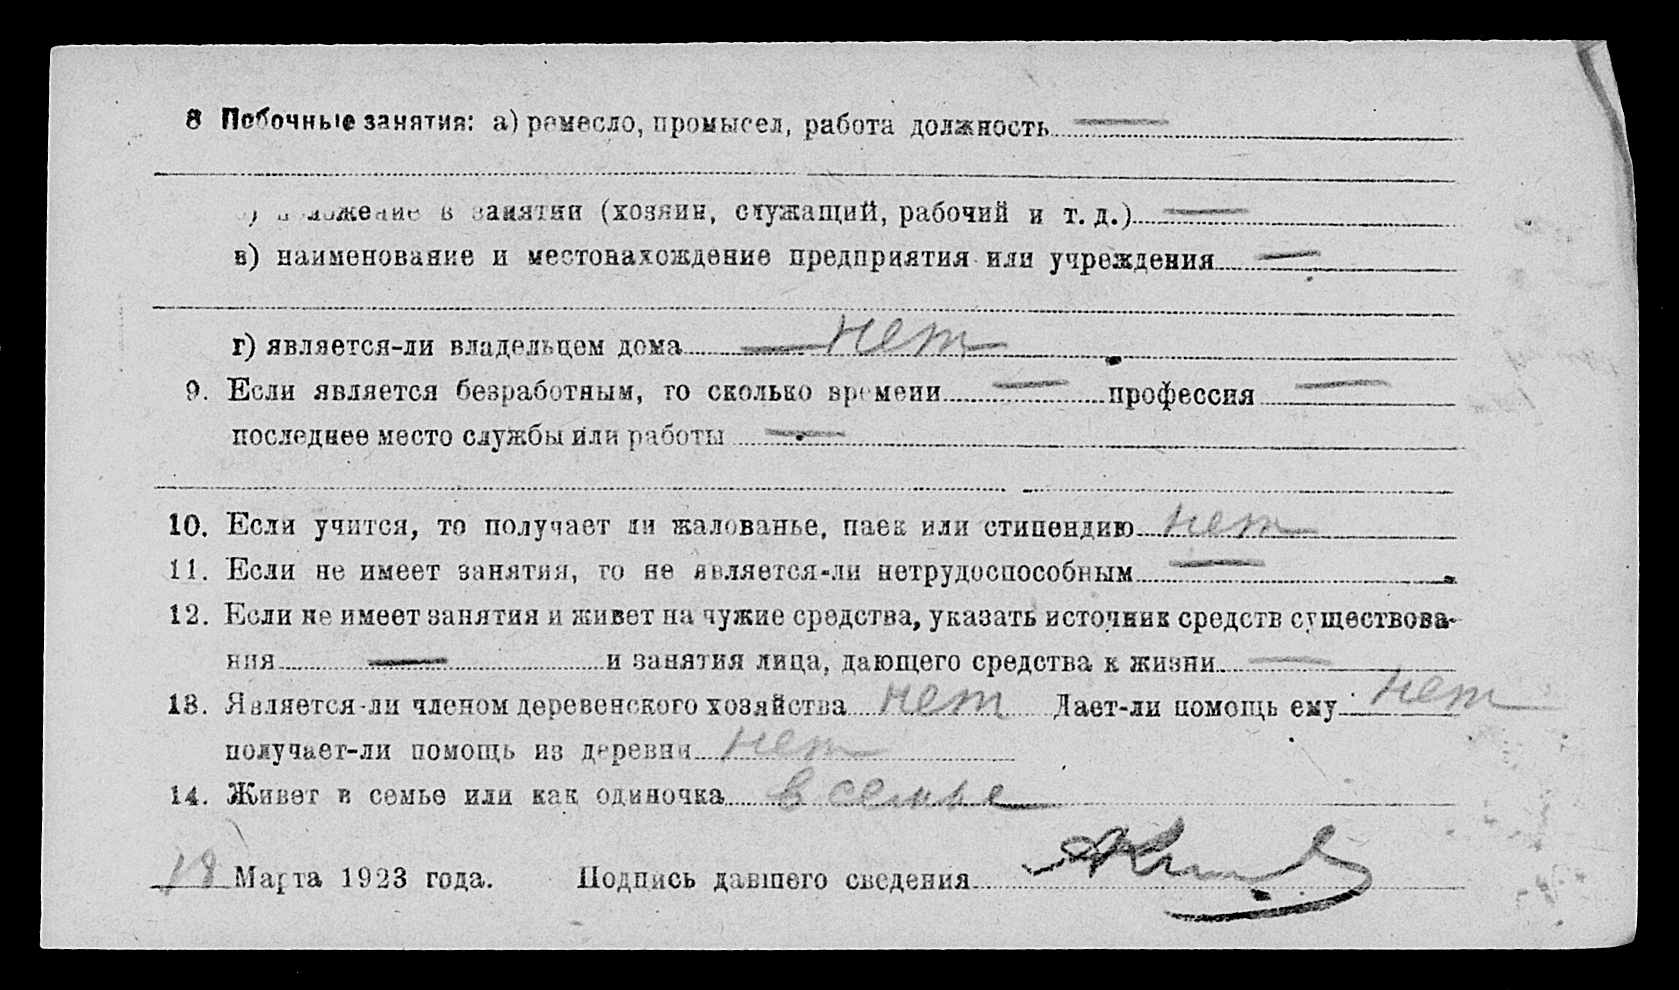 8 Побочные занятия: а) ремесло, промысел, работа должность —
положение в занятии (хозяин, служащий, рабочий и т. д.) —
в) наименование и местонахождение предприятия или учреждения —
г) является-ли владельцем дома — нет
9. Если является безработным, то сколько времени — профессия —
последнее место службы или работы —
10. Если учится, то получает ли жалованье, паек или стипендию нет
11. Если не имеет занятия, то не является-ли нетрудоспособным —
12. Если не имеет занятия и живет на чужие средства, указать источник средств существова-
ния — и занятия лица, дающего средства к жизни —
13. Является-ли членом деревенского хозяйства нет Дает-ли помощь ему нет
получает-ли помощь из деревни нет
14. Живет в семье или как одиночка в семье
18 Марта 1923 года. Подпись давшего сведения